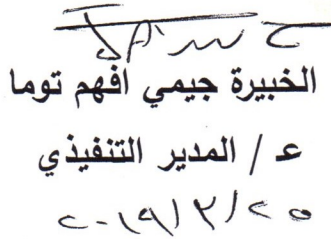 الخبيرة جيمي افهم توما
عـ / المدير التنفيذي
٢٠١٩/٣/٢٥